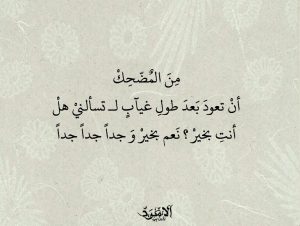 مِنَ المٌضَحِكْ
أنْ تعودَ بَعدَ طولِ غيآبٍ لـ تسألنيْ هلْ
أنتِ بخيرْ؟ نَعم بخيرْ وَ جداً جداً جداً